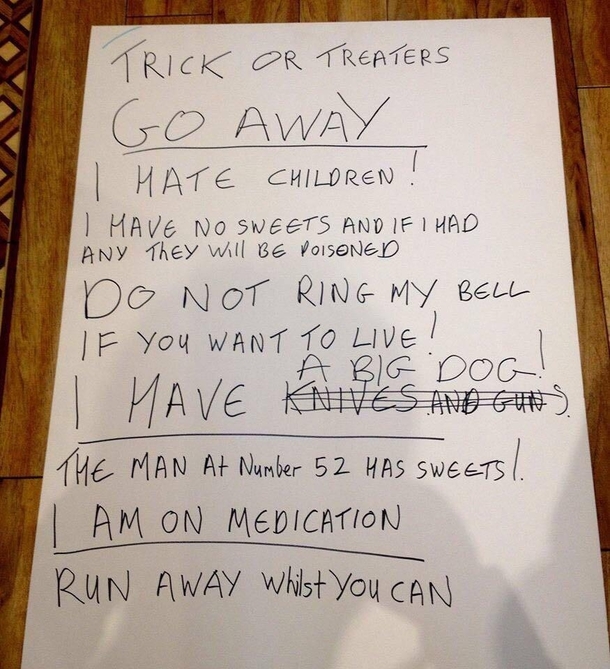 TRICK OR TREATERS
GO AWAY
I HATE CHILDREN!
I HAVE NO SWEETS AND IF I HAD
ANY THEY Will BE POISONED
DO NOT RING MY BELL
IF YOU WANT TO LIVE!
A BIG DOG!
I HAVE KNIVES AND GUNS.
THE MAN At Number 52 HAS SWEETS!.
I AM ON MEDICATION
RUN AWAY Whilst YOU CAN